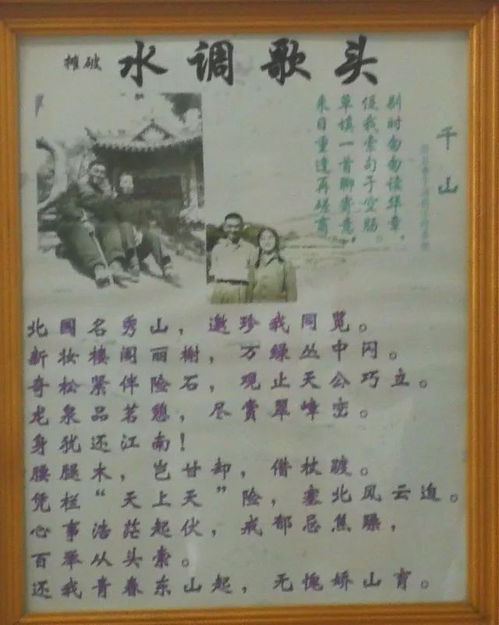 摊破 水调歌头
千山
别时匆匆读华章，
促我索句予空肠。
草填一首聊寄意，
来日重逢再磋商。
北国名秀山，邀珍我同览。
新妆楼阁丽榭，万绿丛中闪。
奇松紧伴险石，观止天公巧立。
龙泉品茗憩，尽赏翠嶂峦。
身犹还江南！
腰腿木，岂甘却，借杖踱。
凭栏“天上天”险，塞北风云迫。
心事浩茫起伏，戒郁忌焦躁，
百举从头索。
还我青春东山起，无愧娇山育。